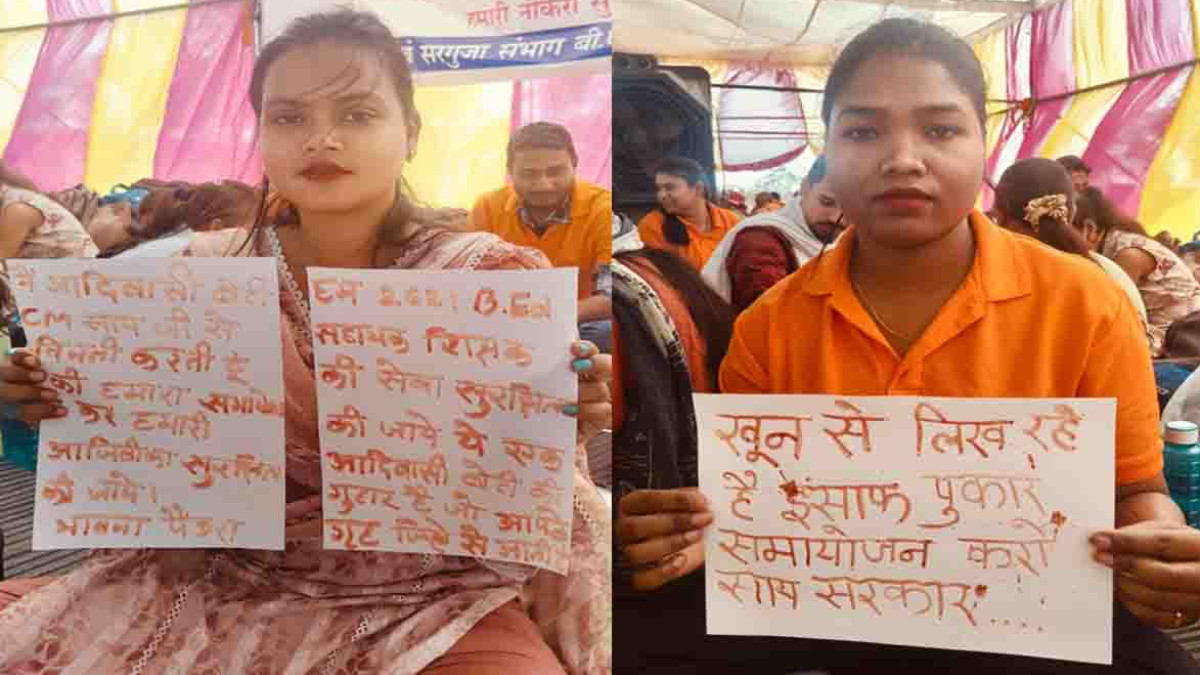 हमारी नौकरी सु
सरगुजा संभाग बी.
मैं आदिवासी बेटी
CM साय जी से
विनती करती हूँ
की हमारा समायोजन
कर हमारी
आजिवीका सुरक्षित
की जाये।
भावना पैंकरा
हम 2621 B.Ed
सहायक शिक्षक
की सेवा सुरक्षित
की जाये ये एक
आदिवासी बेटी की
गुहार है जो आपके
गृह जिले से आती
खून से लिख रहे
है इंसाफ पुकार
समायोजन करो
साय सरकार....